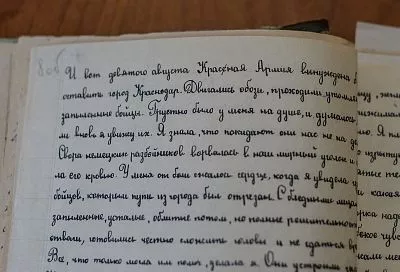 И вот девятого августа Красная Армия вынуждена б
оставить город Краснодар. Двигались обозы, проходили утомлен
запыленные бойцы. Грустно было у меня на душе, и думалось
ли вновь я увижу их. Я знала, что покидают они нас не на до
Свора немецких разбойников ворвалась в наш мирный уголок и
ла его кровью. У меня от боли сжалось сердце, когда я увидела
бойцов, которым путь из города был отрезан. С бледными лицами
запыленные, усталые, облитые потом, но полные решительности
отваги, готовились честно сложить головы и не сдаться в
Все, что только могла им помочь, делала я. Они устроили